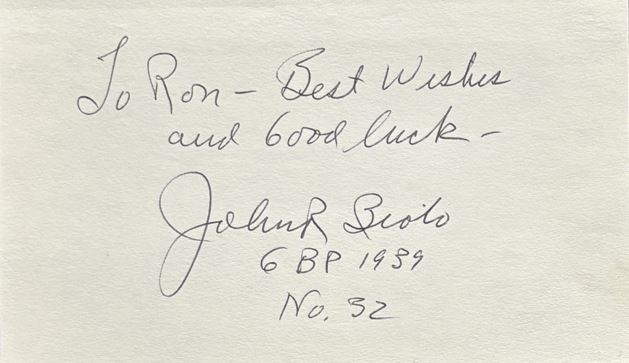 To Ron - Best Wishes
and Good luck -
John R Biolo
GBP 1939
No. 32